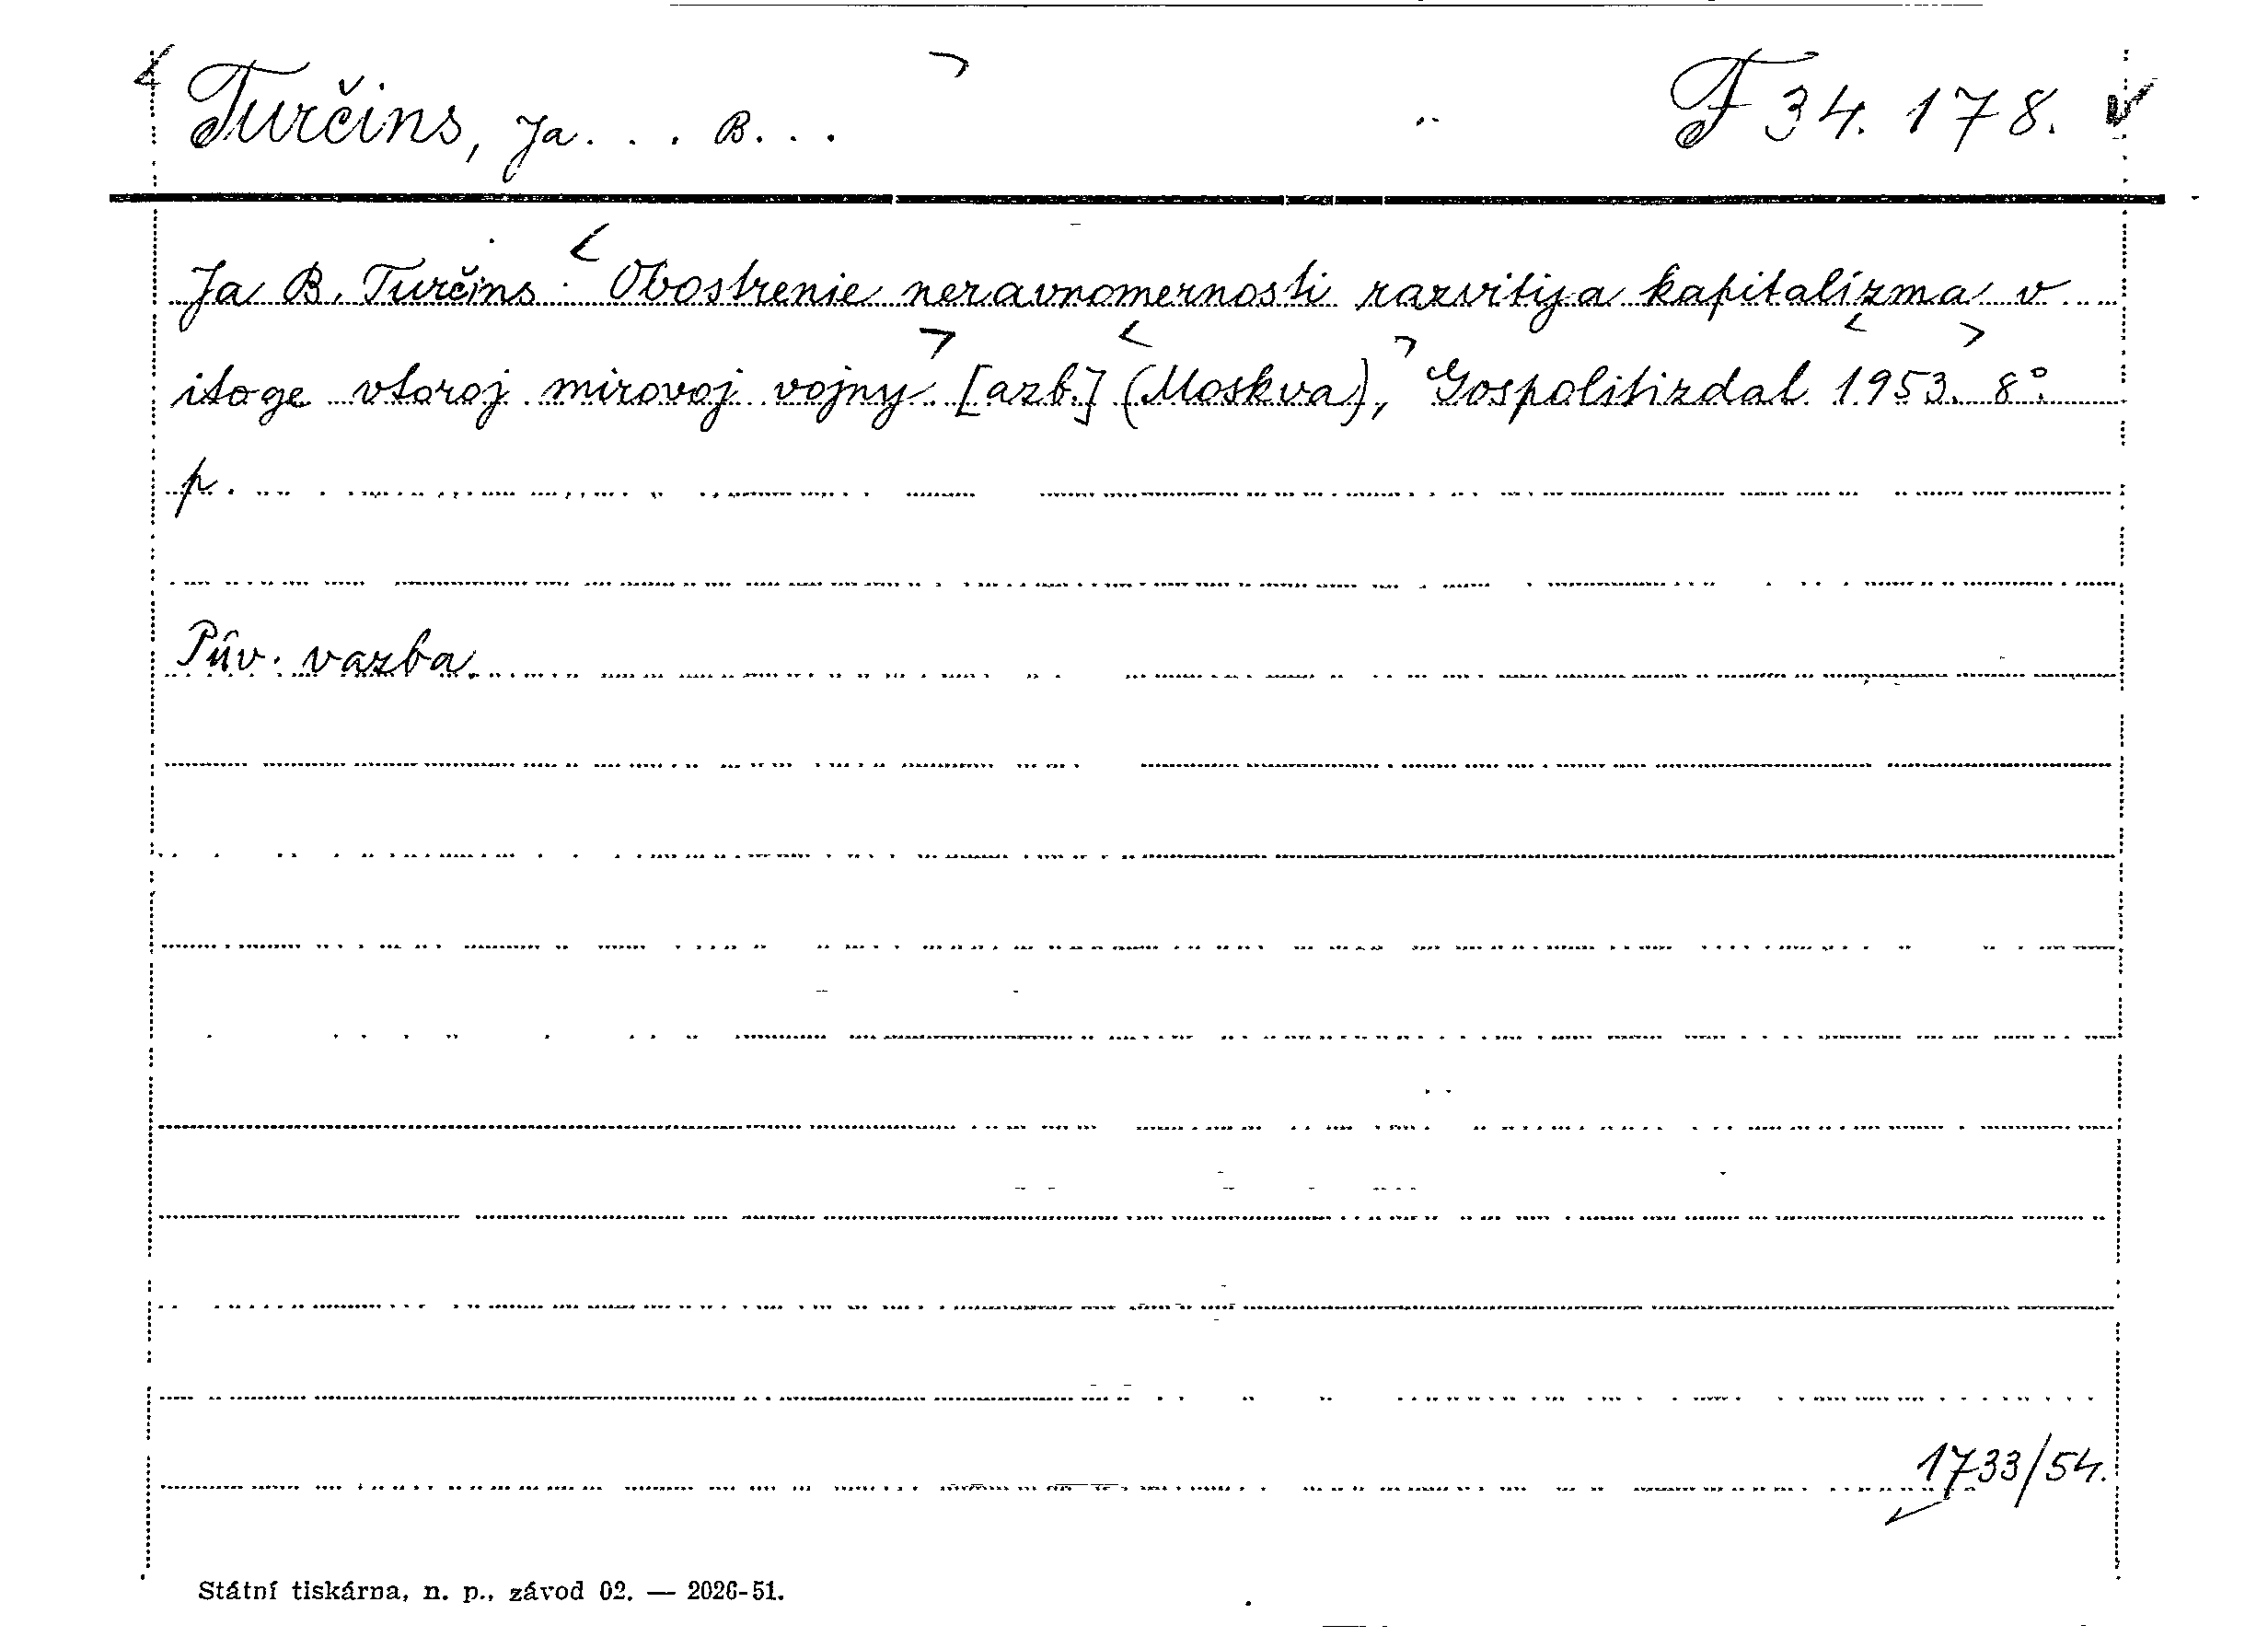 Turčins, Ja... B... F 34.178.
Ja B. Turčins: Obostrenie neravnomernosti razvitija kapitalizma v
itoge vtoroj mirovoj vojny. [azb.] (Moskva), Gospolitizdat 1953. 8°.
p.
Pův. vazba.
1733/54.
Státní tiskárna, n. p., závod 02. — 2026-51.